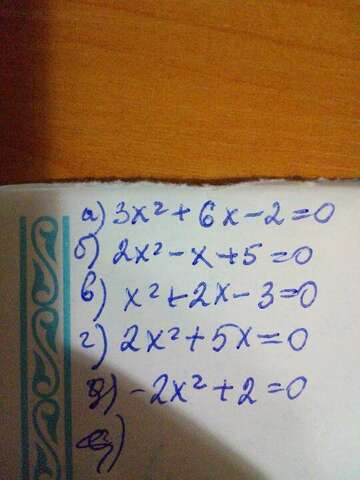 а) 3x² + 6x - 2 = 0
б) 2x² - x + 5 = 0
в) x² + 2x - 3 = 0
г) 2x² + 5x = 0
д) -2x² + 2 = 0
е)